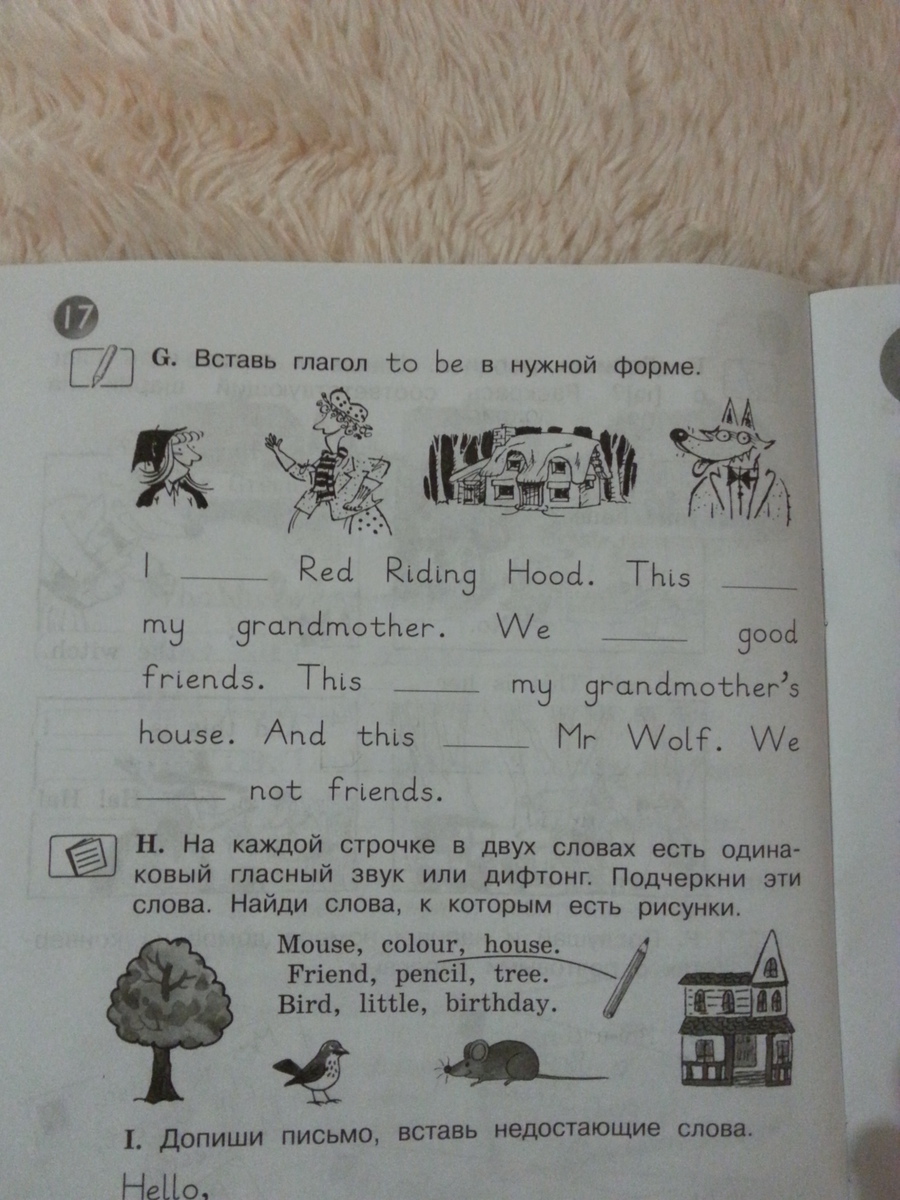 17
G. Вставь глагол to be в нужной форме.
I ____ Red Riding Hood. This ____
my grandmother. We ____ good
friends. This ____ my grandmother's
house. And this ____ Mr Wolf. We
____ not friends.
H. На каждой строчке в двух словах есть одина-
ковый гласный звук или дифтонг. Подчеркни эти
слова. Найди слова, к которым есть рисунки.
Mouse, colour, house.
Friend, pencil, tree.
Bird, little, birthday.
I. Допиши письмо, вставь недостающие слова.
Hello,